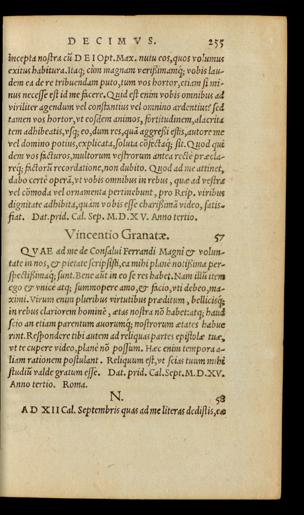 DECIMVS. 255
incepta nostra cū DEI Opt. Max. nutu eos, quos volumus
exitus habitura. Itaq; cùm magnam verißimamq́; vobis lau-
dem ea de re tribuendam puto, tum vos hortor, etiam si mi-
nus necesse est id me facere. Quid est enim vobis omnibus ad
viriliter agendum vel constantius vel omnino ardentius? sed
tamen vos hortor, vt eosdem animos, fortitudinem, alacrita
tem adhibeatis, vsq; eo, dum res, quā aggreßi estis, autore me
vel domino potius, explicata, soluta cōfectaq́; sit. Quod qui
dem vos facturos, multorum vestrorum antea rectè præcla-
req́; factorū recordatione, non dubito. Quod ad me attinet,
dabo certè operā, vt vobis omnibus in rebus, quæ ad vestrā
vel cōmoda vel ornamenta pertinebunt, pro Reip. viribus
dignitate adhibita, quàm vobis esse charißimā video, satis-
fiat. Dat. prid. Cal. Sep. M. D. XV. Anno tertio.
Vincentio Granatæ. 57
QVAE ad me de Consalui Ferrandi Magni & volun-
tate in nos, & pietate scripsisti, ea mihi planè notißima per-
spectißimaq́; sunt. Bene aūt in eo se res habet. Nam illū item
ego & vnicè atq; summopere amo, & facio, vti debeo, ma-
ximi. Virum enim pluribus virtutibus præditum, bellicisq́;
in rebus clariorem hominē, ætas nostra nō habet: atq; haud
scio an etiam parentum auorumq́; nostrorum ætates habue
rint. Respondere tibi autem ad reliquas partes epistolæ tuæ,
vt te cupere video, planè nō possum. Hæc enim tempora a-
liam rationem postulant. Reliquum est, vt scias tuum mihi
studiū valde gratum esse. Dat. prid. Cal. Sept. M. D. XV.
Anno tertio. Roma.
N. 58
AD XII Cal. Septembris quas ad me literas dedistis, eæ